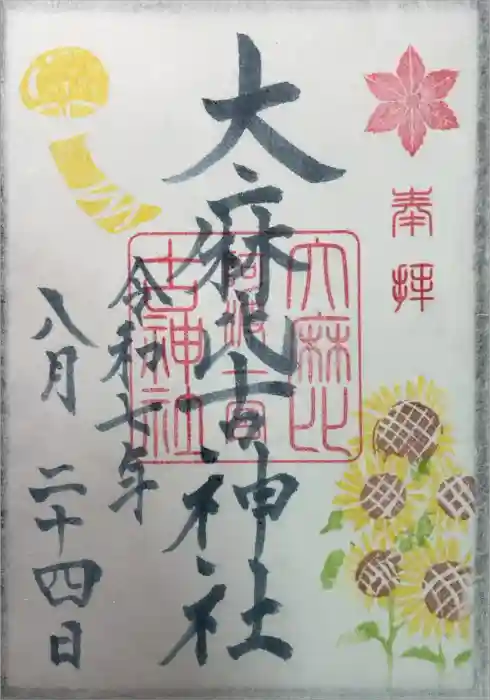 奉拝
大麻比古神社
大麻比
阿波一宮
古神社
令和七年
八月二十四日